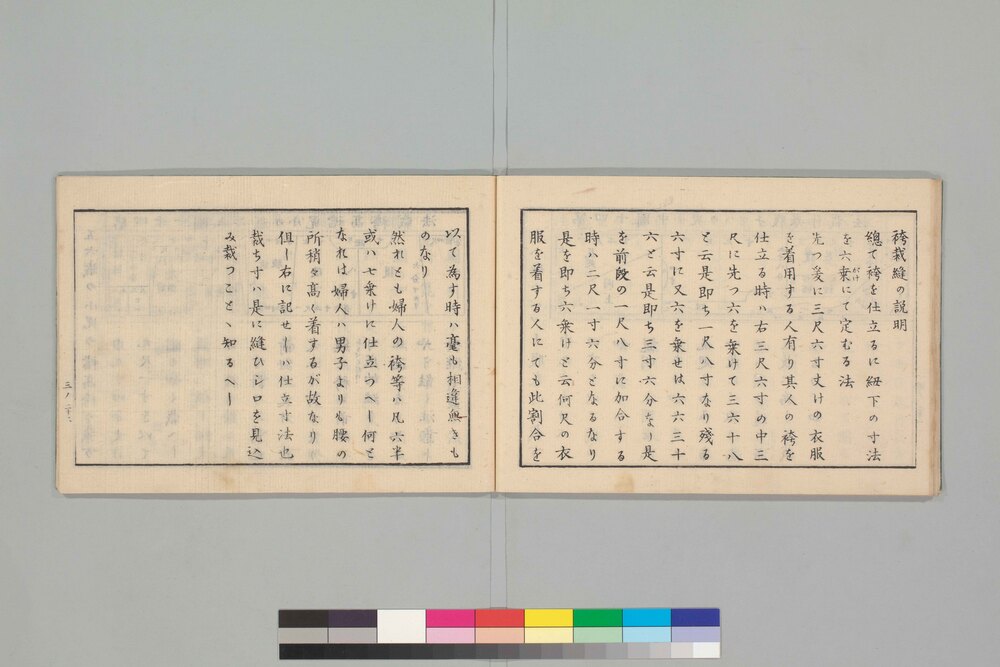 袴裁縫の説明
總て袴を仕立るに紐下の寸法
を六乗にて定むる法
先つ爰に三尺六寸丈けの衣服
を着用する人有り其人の袴を
仕立る時ハ右三尺六寸の中三
尺に先つ六を乗けて三六十八
と云是即ち一尺八寸なり残る
六寸に又六を乗せは六六三十
六と云是即ち三寸六分なり是
を前段の一尺八寸に加合する
時ハ二尺一寸六分となるなり
是を即ち六乗けと云何尺の衣
服を着する人にても此割合を
以て為す時ハ毫も相違無きも
のなり
然れとも婦人の袴等ハ凡六半
或ハ七乗けに仕立つへし何と
なれは婦人ハ男子よりも腰の
所稍々高く着するが故なり
但し右に記せしハ仕立寸法也
裁ち寸ハ是に縫ひシロを見込
み裁つことゝ知るへし